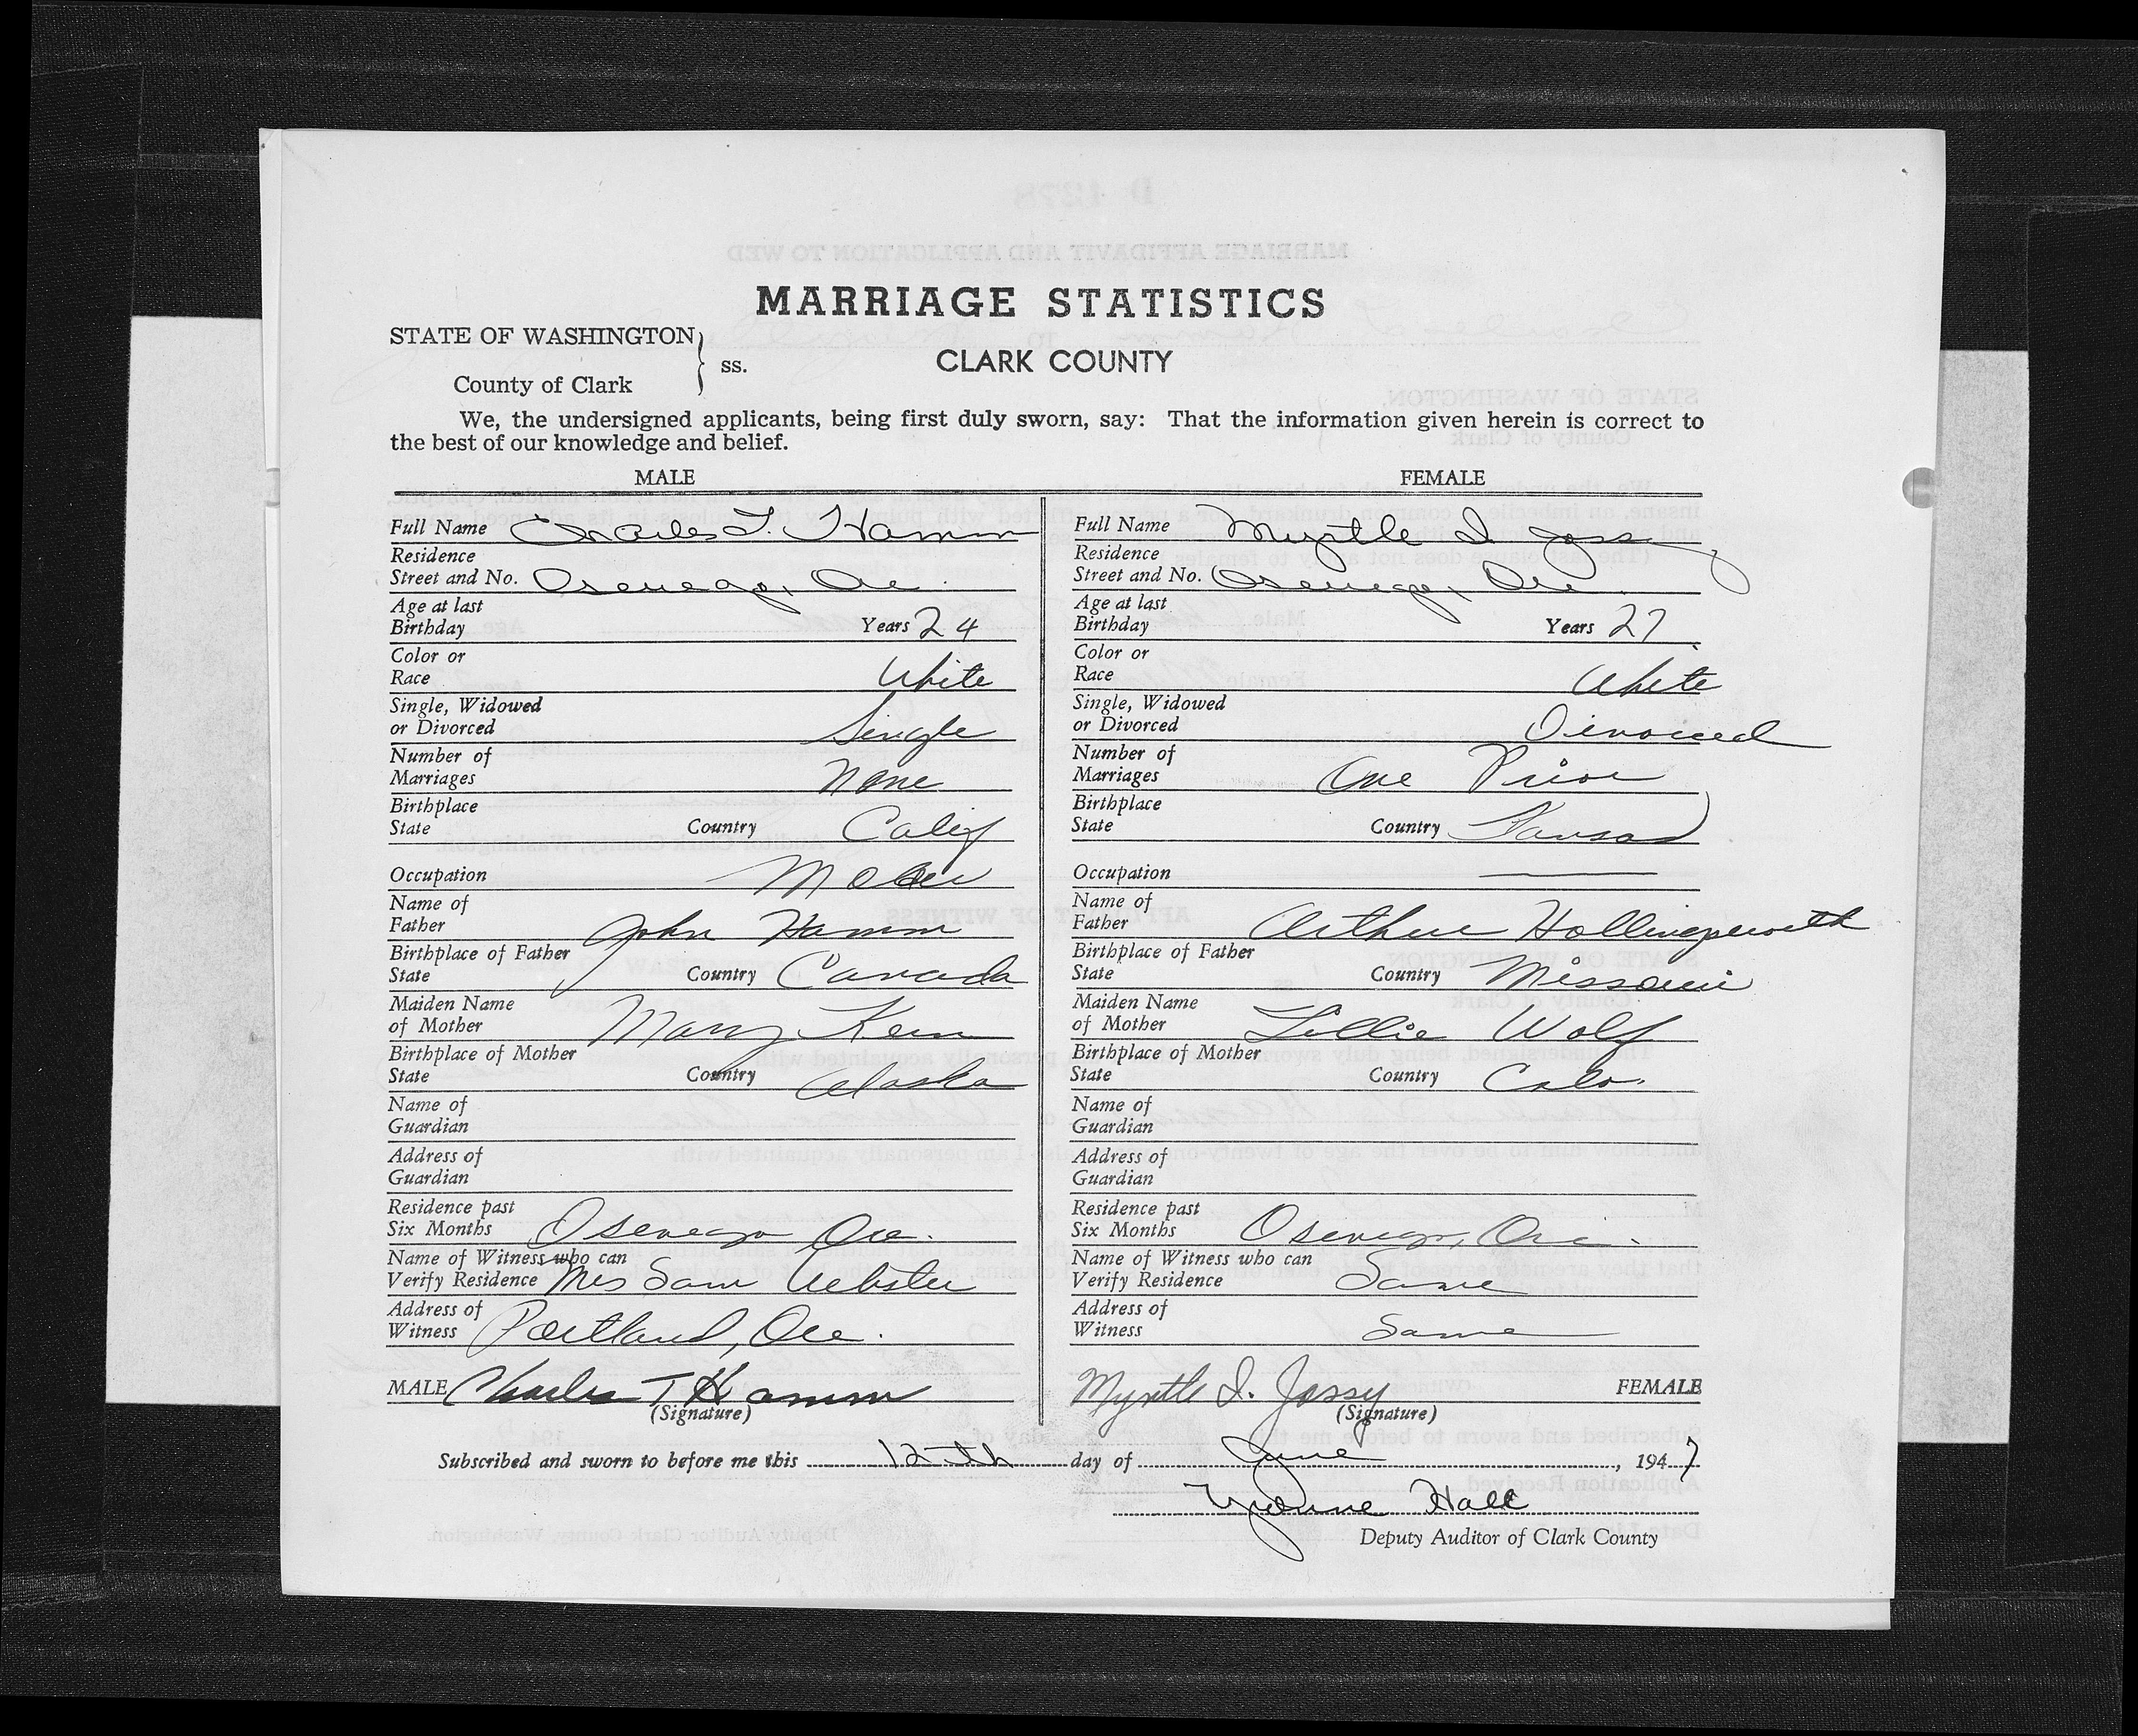 MARRIAGE STATISTICS
STATE OF WASHINGTON } ss.
CLARK COUNTY
County of Clark
We, the undersigned applicants, being first duly sworn, say: That the information given herein is correct to
the best of our knowledge and belief.
MALE FEMALE
Full Name Charles T. Hamm Full Name Myrtle I Jossy
Residence Residence
Street and No. Oswego, Ore. Street and No. Oswego, Ore.
Age at last Age at last
Birthday Years 24 Birthday Years 27
Color or Color or
Race White Race White
Single, Widowed Single, Widowed
or Divorced Single or Divorced Divorced
Number of Number of
Marriages None Marriages One Prior
Birthplace Birthplace
State Country Calif State Country Kansas
Occupation Occupation —
Name of Name of
Father John Hamm Father Arthur Hollingsworth
Birthplace of Father Birthplace of Father
State Country Canada State Country Missouri
Maiden Name Maiden Name
of Mother Mary of Mother Lillie Wolf
Birthplace of Mother Birthplace of Mother
State Country Alaska State Country Colo.
Name of Name of
Guardian Guardian
Address of Address of
Guardian Guardian
Residence past Residence past
Six Months Oswego Ore. Six Months Oswego, Ore.
Name of Witness who can Name of Witness who can
Verify Residence Mrs Sam Webster Verify Residence Same
Address of Address of
Witness Portland, Ore. Witness Same
MALE Charles T Hamm Myrtle I. Jossy FEMALE
(Signature) (Signature)
Subscribed and sworn to before me this 12th day of June, 1947
Yvonne Hall
Deputy Auditor of Clark County